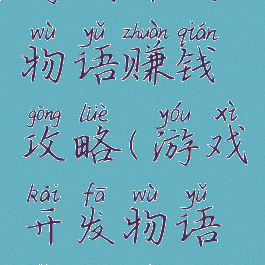 wù yǔ zhuàn qián
物语赚钱
gōng lüè yóu xì
攻略(游戏
kāi fā wù yǔ
开发物语